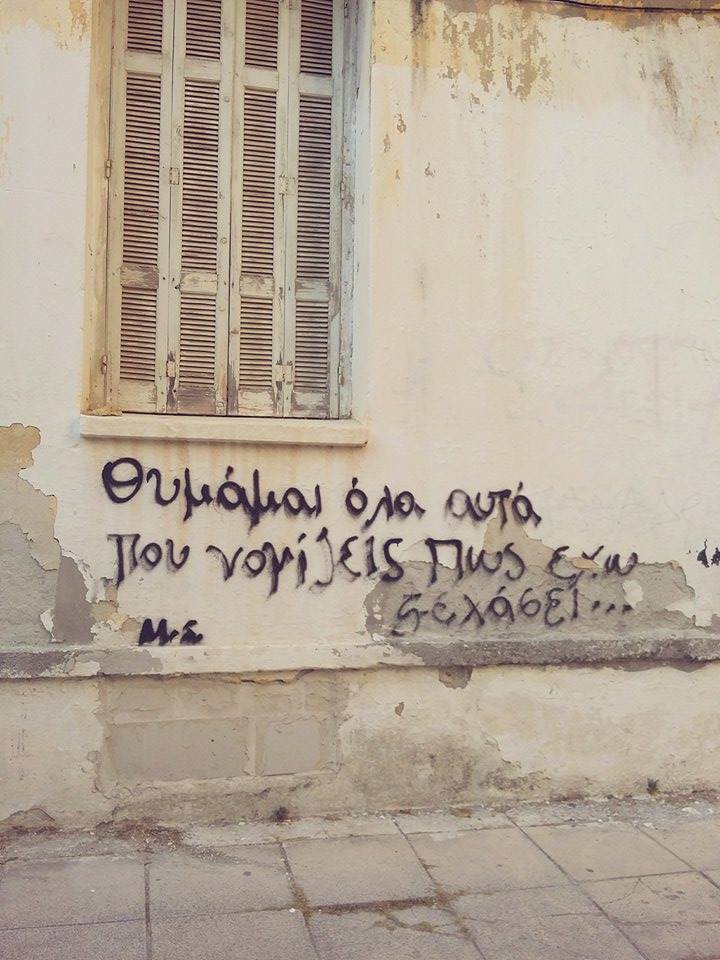 Θυμάμαι όλα αυτά
που νομίζεις πως εχω
ξεχάσει...
Μ.Σ